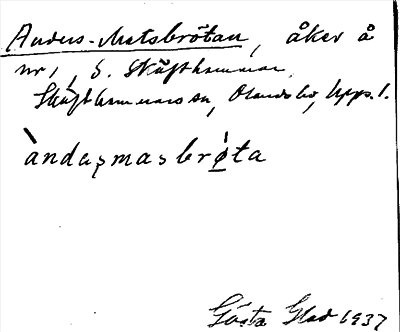 Anders-Matsbråtan, åker å
nr 1, S. Skäfthammar,
Skäfthammars sn, Olands hd, Upps. l.
àndaṣmaṣbrǿta
Gösta Glad 1937